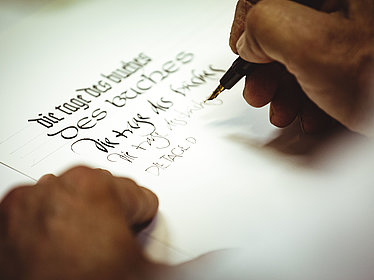 Die tage des buches
Des Buches
Die tage des buches
Die tage des buches
DIE TAGE D